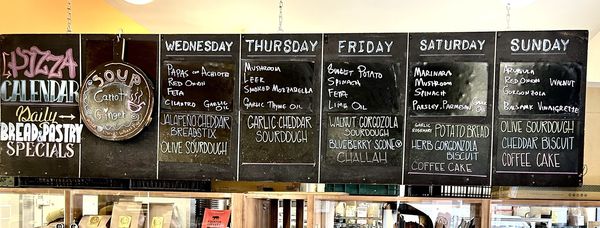 PIZZA
CALENDAR
Daily
BREAD & PASTRY
SPECIALS
SOUP
Carrot
Ginger
WEDNESDAY
PAPAS ON ACHIOTE
RED ONION
FETA
CILANTRO GARLIC OIL
JALAPEÑO CHEDDAR
BREADSTIX
OLIVE SOURDOUGH
THURSDAY
MUSHROOM
LEEK
SMOKED MOZZARELLA
GARLIC THYME OIL
GARLIC-CHEDDAR
SOURDOUGH
FRIDAY
SWEET POTATO
SPINACH
FETA
LIME OIL
WALNUT GORGONZOLA
SOURDOUGH
BLUEBERRY SCONE
CHALLAH
SATURDAY
MARINARA
MUSHROOM
SPINACH
PARSLEY, PARMESAN
GARLIC ROSEMARY POTATO BREAD
HERB GORGONZOLA
BISCUIT
COFFEE CAKE
SUNDAY
ARUGULA
RED ONION WALNUT
GORGONZOLA
BALSAMIC VINAIGRETTE
OLIVE SOURDOUGH
CHEDDAR BISCUIT
COFFEE CAKE